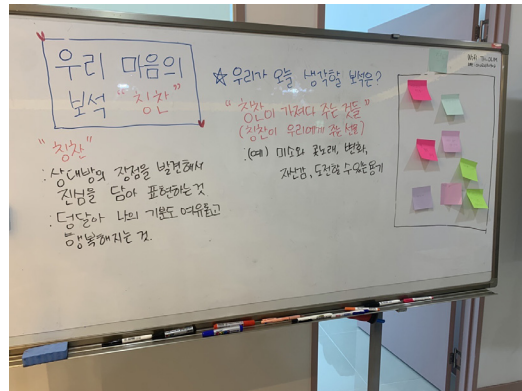 우리 마음의
보석 "칭찬"
"칭찬"
:상대방의 장점을 발견해서
진심을 담아 표현하는 것
:덩달아 나의 기분도 여유롭고
행복해지는 것.
☆우리가 오늘 생각할 보석은?
"칭찬이 가져다 주는 것들"
(칭찬이 우리에게 주는 선물)
:(예) 미소와 콧노래, 변화,
자신감, 도전할 수 있는 용기